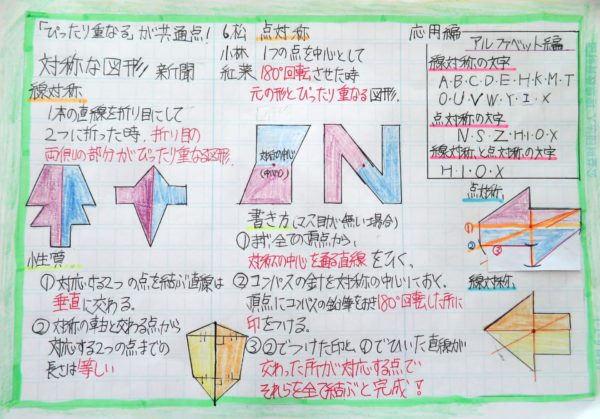 「ぴったり重なる」が共通点!
対称な図形 新聞
6.松
小林
紅葉
線対称
1本の直線を折り目にして
2つに折った時、折り目の
両側の部分がぴったり重なる図形.
性質
①対応する2つの点を結ぶ直線は
垂直に交わる.
②対称の軸と交わる点から
対応する2つの点までの
長さは等しい
点対称
1つの点を中心として
180°回転させた時
元の形とぴったり重なる図形.
対称の中心
(中心O)
書き方(マス目が無い場合)
①まず全ての頂点から、
対称の中心を通る直線をひく。
②コンパスの針を対称の中心におく.
頂点にコンパスの鉛筆をおき180°回転した所に
印をつける。
③②でつけた印と、①でひいた直線が
交わった所が対応する点で
それらを全て結ぶと完成!
応用編
アルファベット編
線対称の文字
A・B・C・D・E・H・K・M・T
O・U・V・W・Y・I・X
点対称の文字
N・S・Z・H・I・O・X
線対称と点対称の文字
H・I・O・X
点対称
①
②
③
線対称